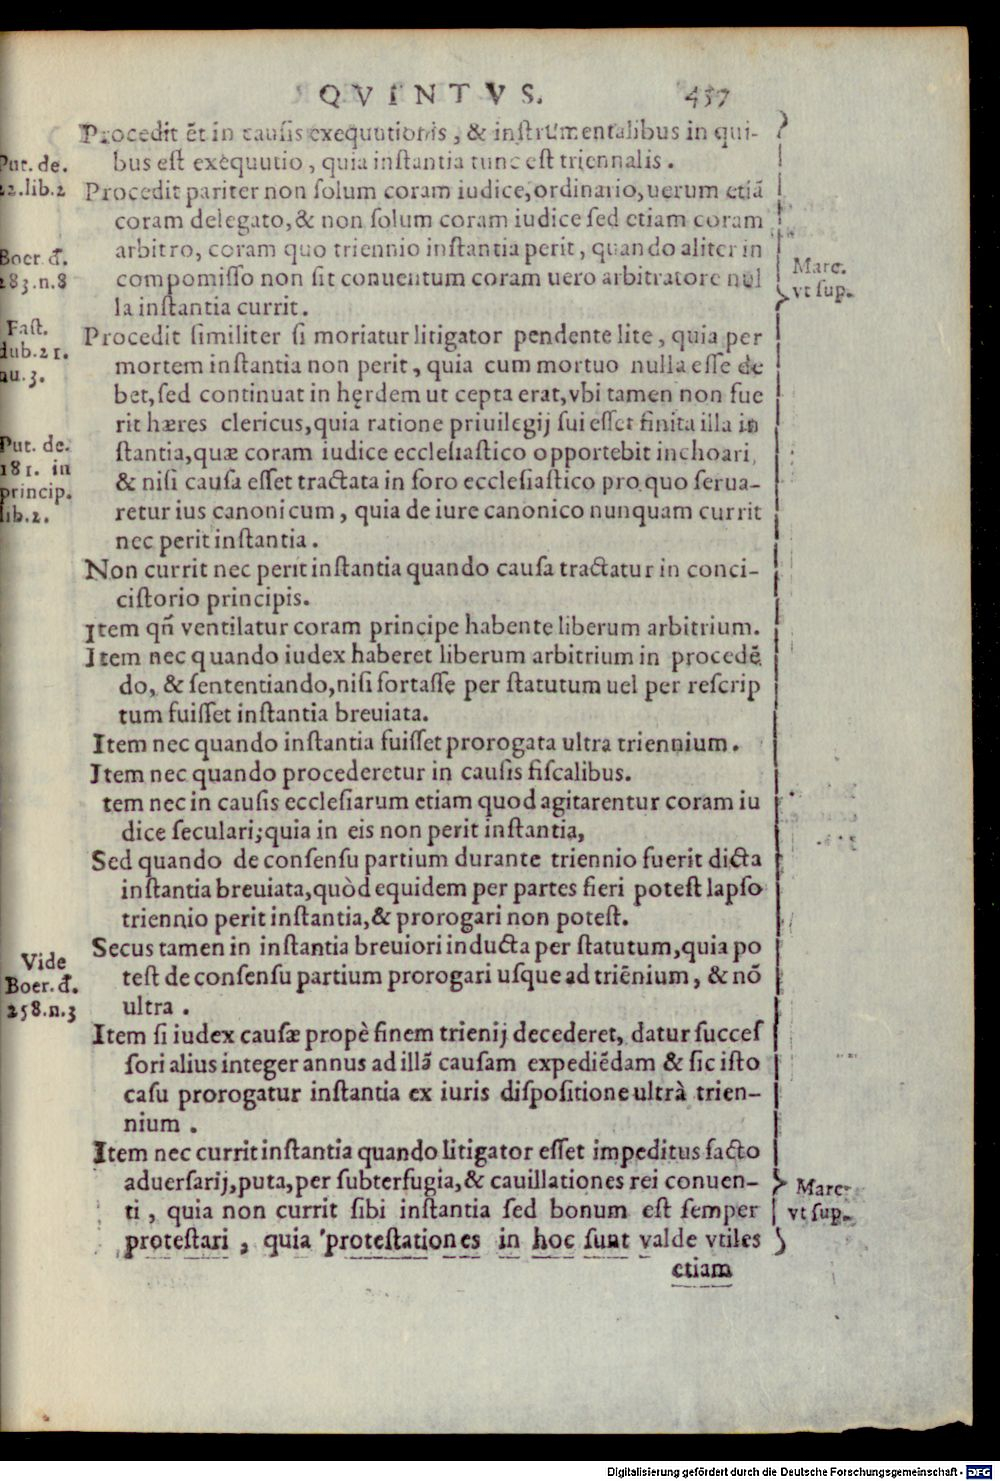 QVINTVS.
457
Procedit ẽt in causis exequutionis, & instrumentalibus in qui-
bus est exequutio, quia instantia tunc est triennalis.
Put. de.
22. lib. 2
Procedit pariter non solum coram iudice, ordinario, uerum etiã
coram delegato, & non solum coram iudice sed etiam coram
arbitro, coram quo triennio instantia perit, quando aliter in
compomisso non sit conuentum coram uero arbitratore nul
la instantia currit.
Boer. đ.
283. n. 8
Marc.
vt sup.
Procedit similiter si moriatur litigator pendente lite, quia per
mortem instantia non perit, quia cum mortuo nulla esse de
bet, sed continuat in hęrdem ut cepta erat, vbi tamen non fue
rit hæres clericus, quia ratione priuilegij sui esset finita illa in
stantia, quæ coram iudice ecclesiastico opportebit inchoari,
& nisi causa esset tractata in foro ecclesiastico pro quo serua-
retur ius canonicum, quia de iure canonico nunquam currit
nec perit instantia.
Fast.
dub. 21.
nu. 3.
Put. de.
181. in
princip.
lib. 2.
Non currit nec perit instantia quando causa tractatur in conci-
cistorio principis.
Item qñ ventilatur coram principe habente liberum arbitrium.
Item nec quando iudex haberet liberum arbitrium in procedẽ
do, & sententiando, nisi fortasse per statutum uel per rescrip
tum fuisset instantia breuiata.
Item nec quando instantia fuisset prorogata ultra triennium.
Item nec quando procederetur in causis fiscalibus.
tem nec in causis ecclesiarum etiam quod agitarentur coram iu
dice seculari; quia in eis non perit instantia,
Sed quando de consensu partium durante triennio fuerit dicta
instantia breuiata, quòd equidem per partes fieri potest lapso
triennio perit instantia, & prorogari non potest.
Secus tamen in instantia breuiori inducta per statutum, quia po
test de consensu partium prorogari usque ad triẽnium, & nõ
ultra.
Vide
Boer. đ.
258. n. 3
Item si iudex causæ propè finem trienij decederet, datur succes
sori alius integer annus ad illã causam expediẽdam & sic isto
casu prorogatur instantia ex iuris dispositione ultrà trien-
nium.
Item nec currit instantia quando litigator esset impeditus facto
aduersarij, puta, per subterfugia, & cauillationes rei conuen-
ti, quia non currit sibi instantia sed bonum est semper
protestari, quia protestationes in hoc sunt valde vtiles
Marc.
vt sup.
etiam
Digitalisierung gefördert durch die Deutsche Forschungsgemeinschaft - DFG